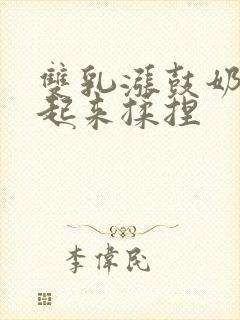 雙乳漲鼓奶
起来揉捏
李偉民